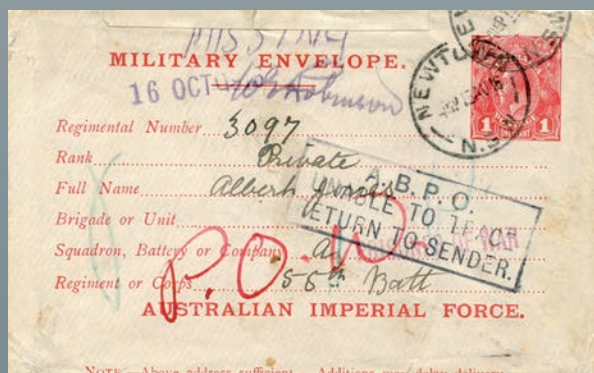 MISSING
MILITARY ENVELOPE.
16 OCT
W Robinson
NEWTOWN
N.S.W.
1 1
Regimental Number 3097
Rank Private
Full Name Albert Jones
Brigade or Unit
Squadron, Battery or Company A
Regiment or Corps 55th Batt
P.O.W
A.B.P.O.
UNABLE TO TRACE
RETURN TO SENDER.
PRISONER OF WAR
AUSTRALIAN IMPERIAL FORCE.
NOTE—Above address sufficient. Additions may delay delivery.